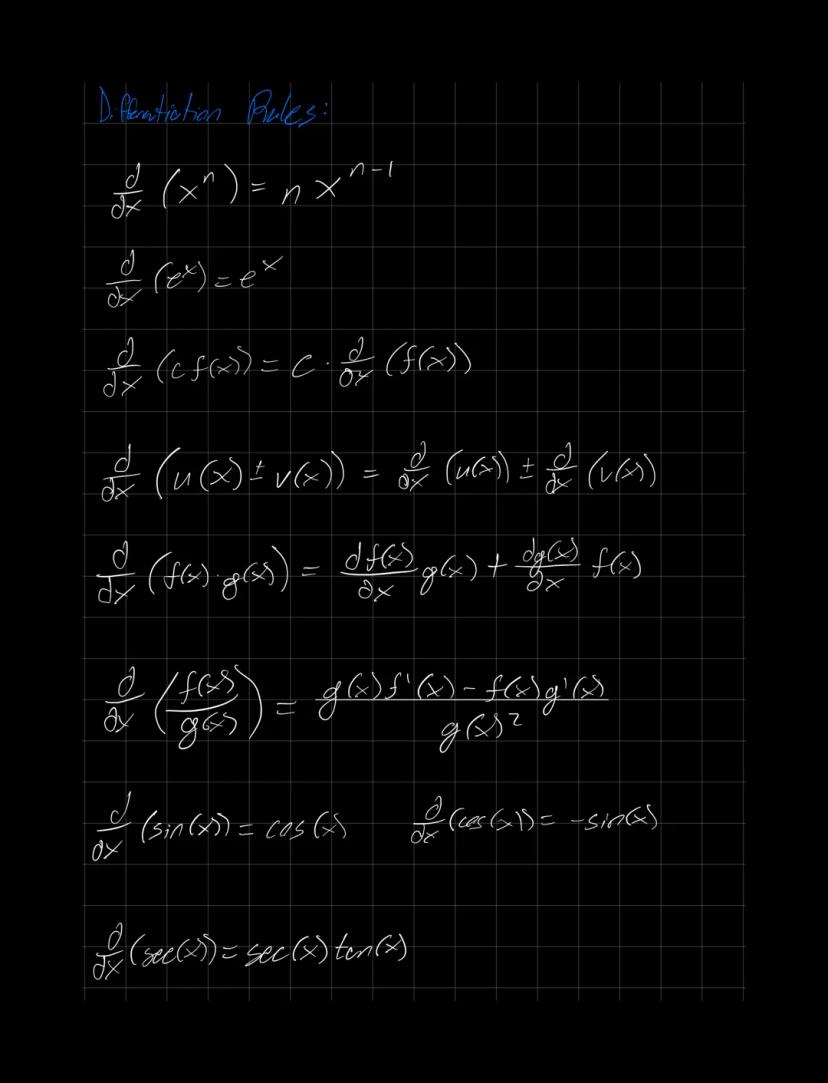 Differentiation Rules:
d/dx (x^n) = n x^(n-1)
d/dx (e^x) = e^x
d/dx (c f(x)) = c · d/dx (f(x))
d/dx (u(x) ± v(x)) = d/dx (u(x)) ± d/dx (v(x))
d/dx (f(x) · g(x)) = df(x)/dx g(x) + dg(x)/dx f(x)
d/dx (f(x)/g(x)) = (g(x) f'(x) - f(x) g'(x))/g(x)^2
d/dx (sin(x)) = cos(x) d/dx (cos(x)) = -sin(x)
d/dx (sec(x)) = sec(x) tan(x)